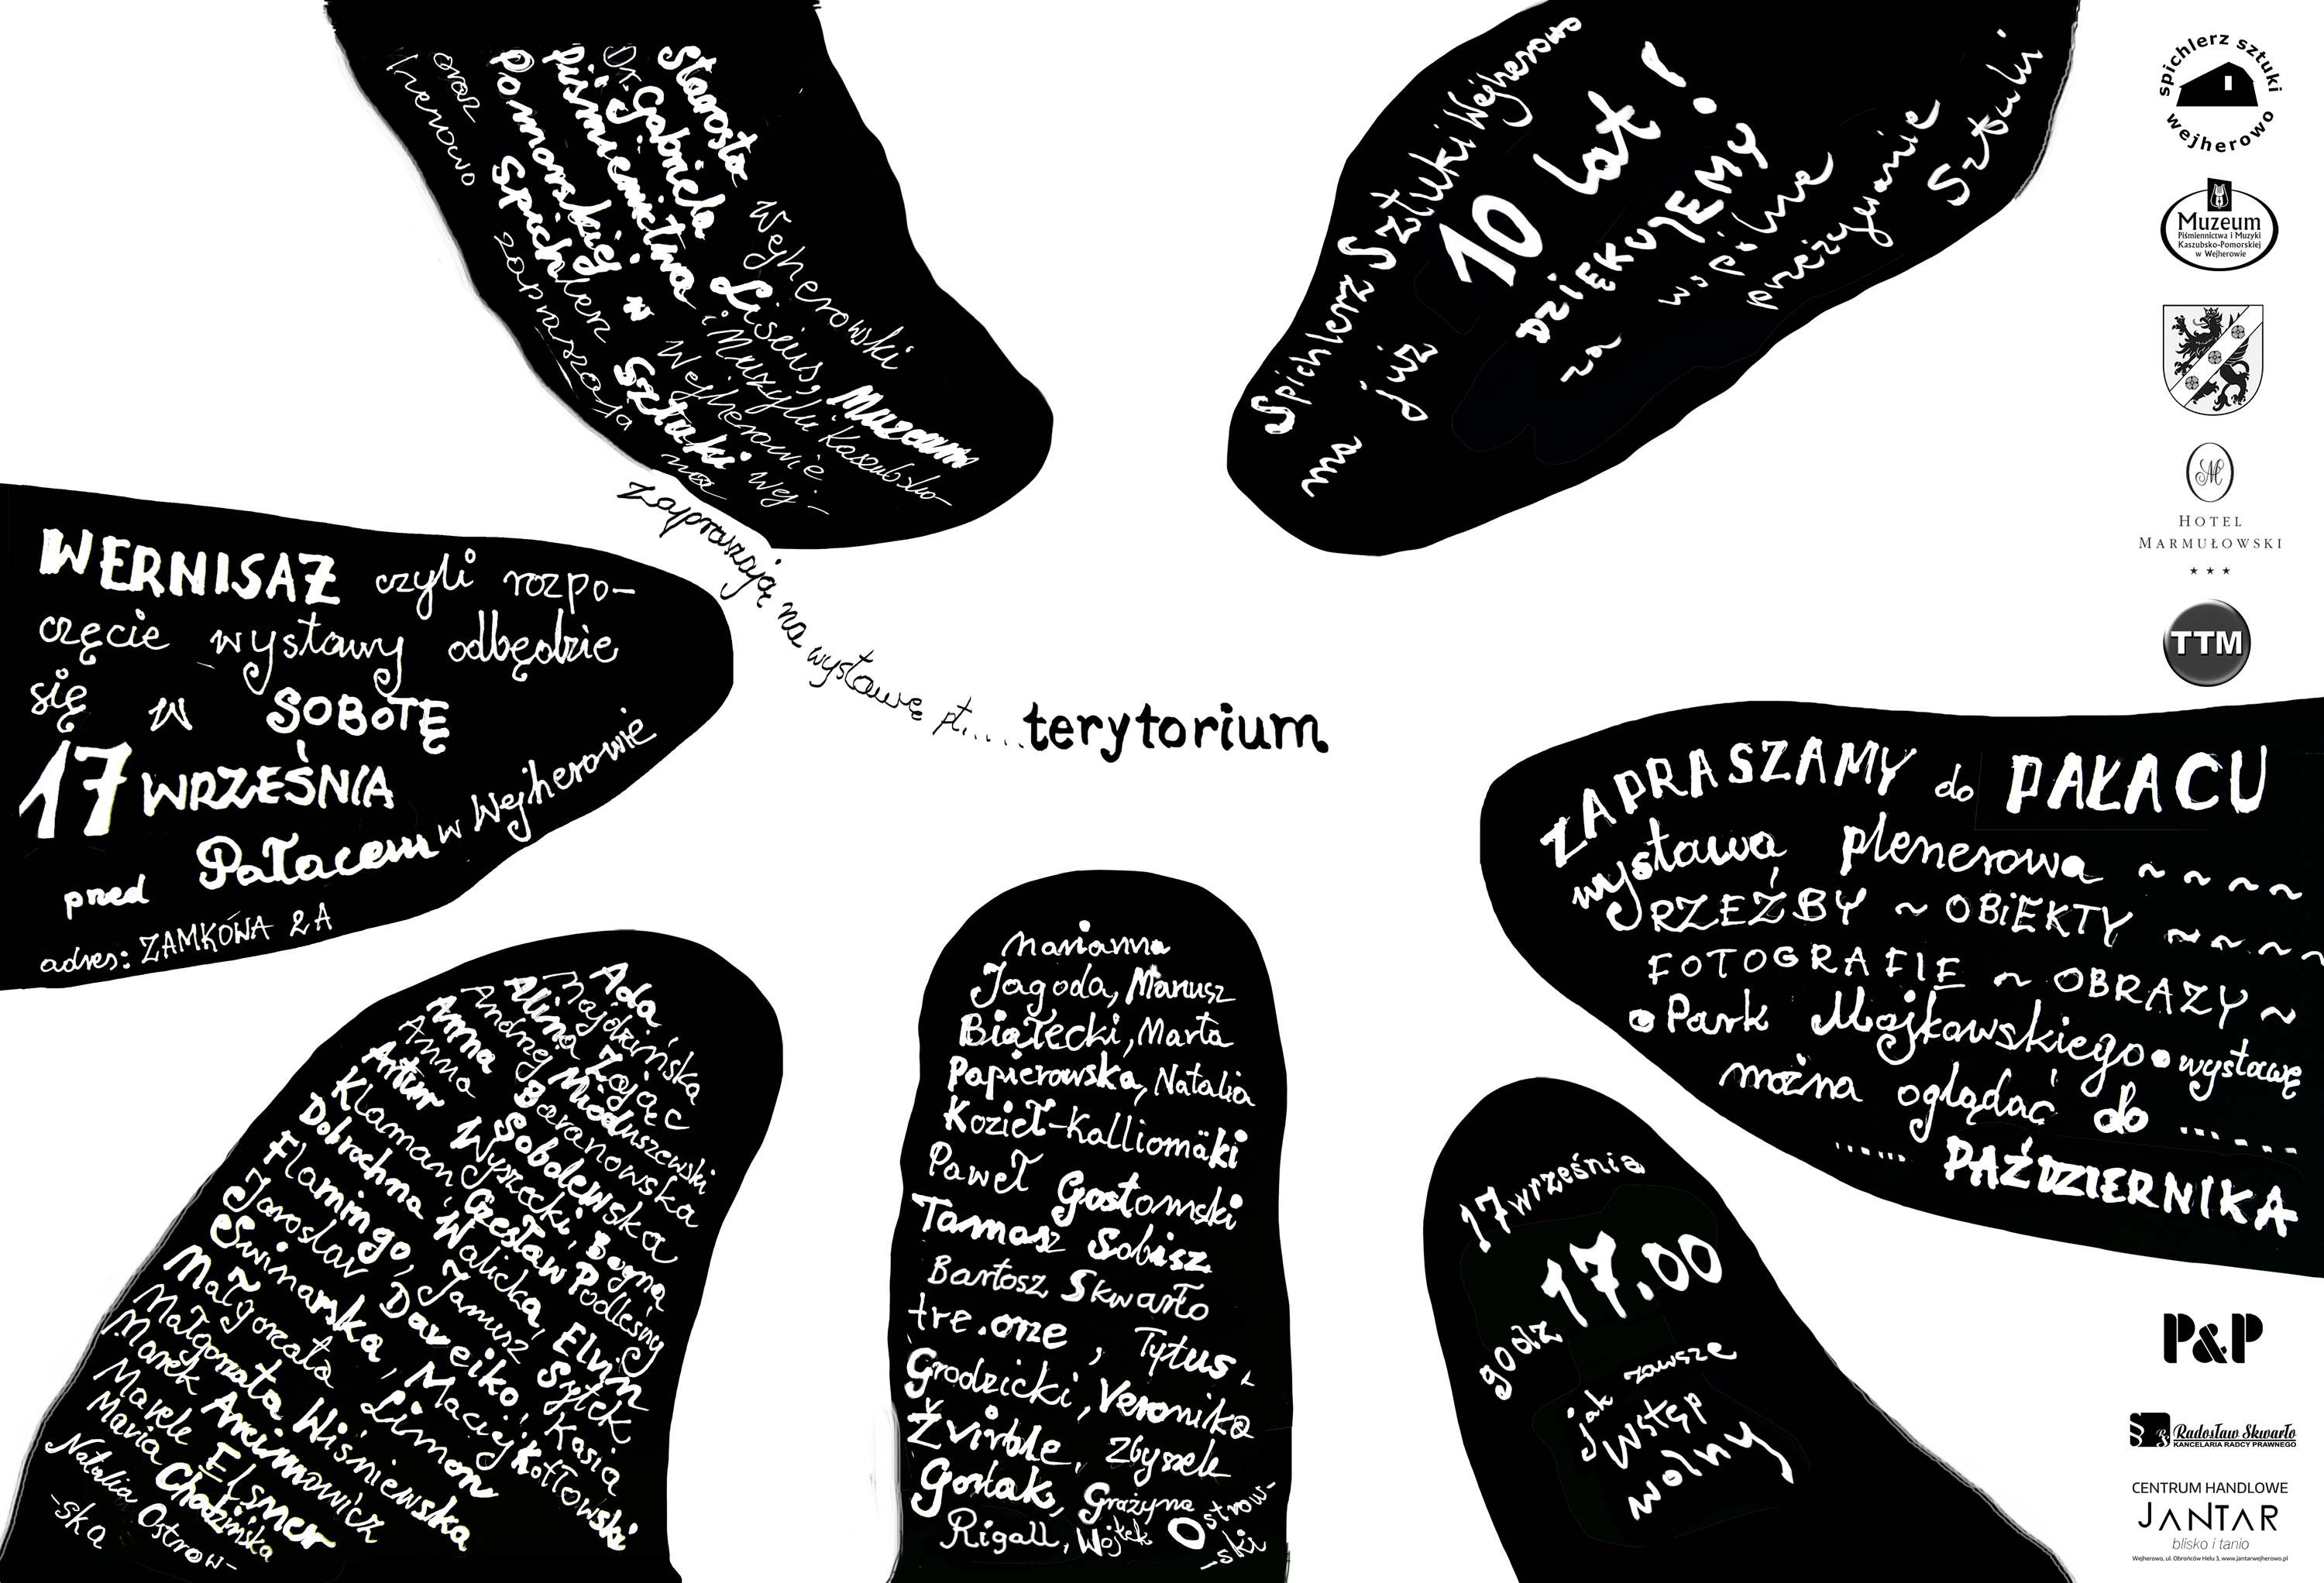 Starosta Wejherowski
Dr Gabriela Lisius, Muzeum
piśmiennictwa i Muzyki Kaszubsko-
Pomorskiej w Wejherowie
oraz Spichlerz Sztuki Wej-
herowo zapraszają na
Spichlerz Sztuki Wejherowo
ma już 10 lat!
DZIĘKUJEMY
za wspólne
przeżywanie
Sztuki
zapraszają na wystawę pt.....terytorium
WERNISAŻ czyli rozpo-
częcie wystawy odbędzie
się w SOBOTĘ
17 WRZEŚNIA
pred Pałacem w Wejherowie
adres: ZAMKOWA 2A
ZAPRASZAMY do PAŁACU
wystawa plenerowa ~ ~ ~ ~ ~
RZEŹBY ~ OBIEKTY ~ ~ ~ ~
FOTOGRAFIE ~ OBRAZY ~
• Park Majkowskiego • wystawę
można oglądać do ......
..... PAŹDZIERNIKA
Ada
Majdzińska
Alina Zając
Andrzej Mioduszewski
Anna Baranowska
Anna Sobolewska
Artur Wyszecki, Bogna
Klaman, Czesław Podleśny
Dobrochna Walicka, Elvin
Flamingo, Janusz Szytek
Jaroslav Daveiko, Kasia
Swinarska, Maciej Kotłowski
Małgorzata Limon
Małgorzata Wiśniewska
Marek Arcimowicz
Marek Elsner
Maria Chodzińska
Natalia Ostrow-
-ska
Marianna
Jagoda, Mariusz
Białecki, Marta
Papierowska, Natalia
Kozieł-Kalliomäki
Paweł Gostomski
Tomasz Sobisz
Bartosz Skwarło
tre.one, Tytus
Grodzicki, Veronika
Žvirble, Zbyszek
Gorlak, Grażyna
Rigall, Wojtek Ostrow-
-ski
17 września
godz 17.00
jak zawsze
wstęp
wolny
spichlerz sztuki
wejherowo
Muzeum
Piśmiennictwa i Muzyki
Kaszubsko-Pomorskiej
w Wejherowie
M
HOTEL
MARMUŁOWSKI
★ ★ ★
TTM
P&P
Radosław Skwarło
KANCELARIA RADCY PRAWNEGO
CENTRUM HANDLOWE
JANTAR
blisko i tanio
Wejherowo, ul. Obrońców Helu 3, www.jantarwejherowo.pl